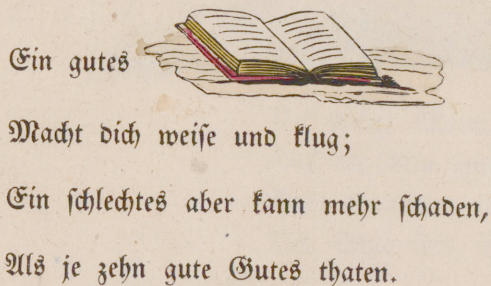 Ein gutes
Macht dich weise und klug;
Ein schlechtes aber kann mehr schaden,
Als je zehn gute Gutes thaten.